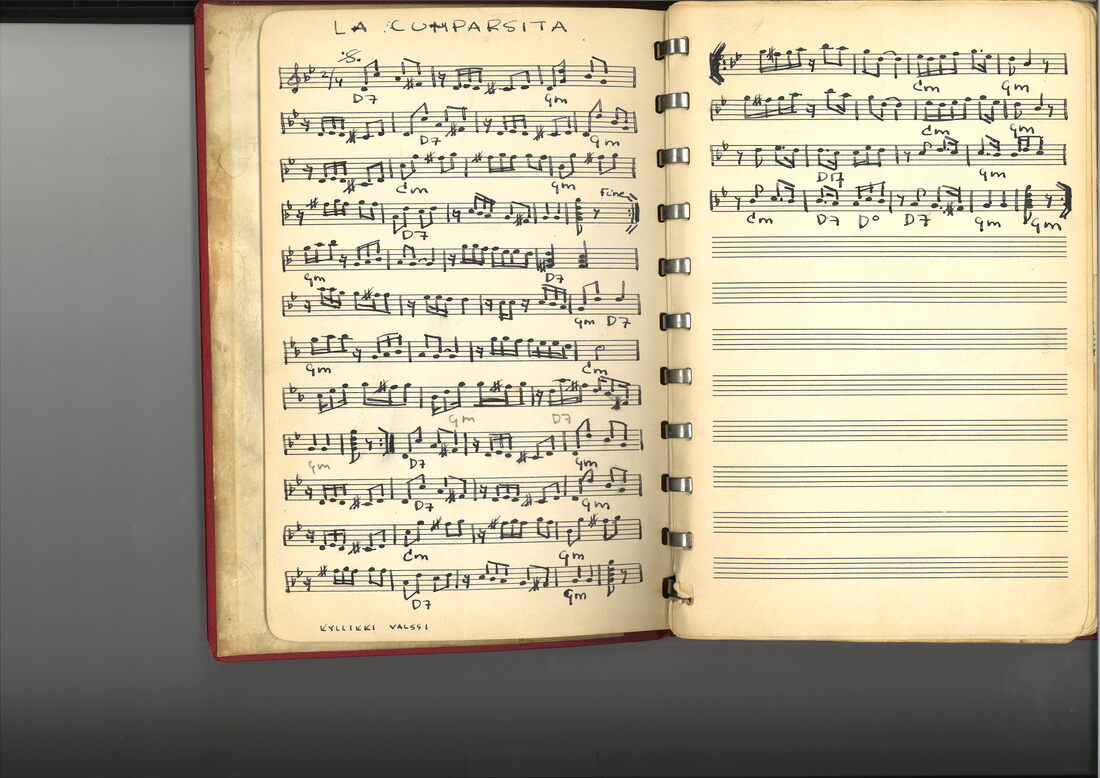 LA CUMPARSITA
D7 Gm
D7 Gm
Cm Gm Fine
D7
Gm D7
Gm D7
Gm Cm
Gm D7
Gm D7 Gm
D7 Gm
Cm Gm
D7 Gm
KYLLIKKI VALSSI
Cm Gm
Cm Gm
D7 Gm
Cm D7 D° D7 Gm Gm